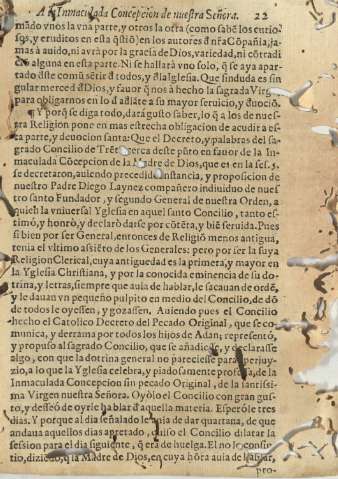 A la Inmaculada Concepcion de nuestra Señora. 22
mãdo vnos la vna parte, y otros la otra (como sabẽ los curio
sos, y eruditos en esta q̃stiõ) en los autores d̃ nr̃a Cõpañia, ja
mas à auido, ni avrà por la gracia de Dios, variedad, ni cõtradi
ciõ alguna en esta parte. Ni se hallarà vno solo, q̃ se aya apar-
tado d̃ste comũ sẽtir d̃ todos, y d̃la Iglesia. Que sin duda es sin
gular merced d̃ Dios, y fauor q̃ nos à hecho la sagrada Virgẽ
para obligarnos en lo d̃ adiãte a su mayor seruicio, y d̃uociõ.
Y porq̃ se diga todo, darà gusto saber, lo q̃ a los de nues
tra Religion pone en mas estrecha obligacion de acudir a es
ta parte, y deuocion santa: Que el Decreto, y palabras del sa
grado Concilio de Trẽto, cerca deste pũto en fauor de la In-
maculada Cõcepcion de la Madre de Dios, que es en la ses. 5.
se decretaron, auiendo precedido instancia, y proposicion de
nuestro Padre Diego Laynez compañero indiuiduo de nues-
tro santo Fundador, y segundo General de nuestra Orden, a
quien la vniuersal Yglesia en aquel santo Concilio, tanto es-
timò, y honrò, y declarò darse por cõtẽta, y biẽ seruida. Pues
si bien por ser General, entonces de Religiõ menos antigua,
tenia el vltimo assiẽto de los Generales: pero por ser la suya
Religion Clerical, cuya antiguedad es la primera, y mayor en
la Yglesia Christiana, y por la conocida eminencia de su do-
trina, y letras, siempre que auia de hablar, le sacauan de ordẽ,
y le dauan vn pequeño pulpito en medio del Concilio, de dõ
de todos le oyessen, y gozassen. Auiendo pues el Concilio
hecho el Catolico Decreto del Pecado Original, que se co-
munica, y derrama por todos los hijos de Adan; representò,
y propuso al sagrado Concilio, que se añadiesse, y declarasse
algo, con que la dotrina general no pareciesse parar perjuy-
zio, a lo que la Yglesia celebra, y piadosamente professa, de la
Inmaculada Concepcion sin pecado Original, de la santissi-
ma Virgen nuestra Señora. Oyòlo el Concilio con gran gus-
to, y desseò de oyrle hablar d̃ aquella materia. Esperòle tres
dias. Y porque al dia señalado le auia de dar quartana, de que
andaua aquellos dias apretado, quiso el Concilio dilatar la
session para el dia siguiente, q̃ era de huelga. El no lo consin-
tio, diziẽdo, q̃ la Madre de Dios, en cuya hõra auia de hablar,
pro-